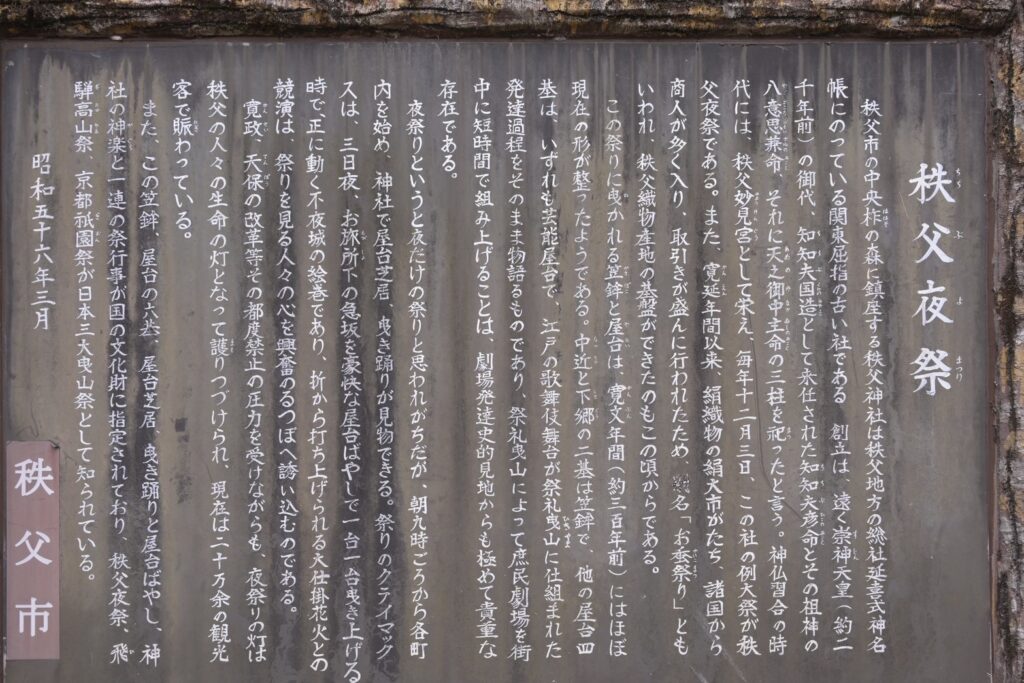 秩父夜祭
秩父市の中央柞の森に鎮座する秩父神社は秩父地方の総社延喜式神名
帳にのっている関東屈指の古い社である 創立は、遠く崇神天皇(約二
千年前)の御代、知知夫国造として永任された知知夫彦命とその祖神の
八意思兼命、それに天之御中主命の三柱を祀ったと言う。神仏習合の時
代には、秩父妙見宮として栄え、毎年十二月三日、この社の例大祭が秩
父夜祭である。また、寛延年間以来、絹織物の絹大市がたち、諸国から
商人が多く入り、取引が盛んに行われたため、別名「お蚕祭り」とも
いわれ、秩父織物産地の基盤ができたのもこの頃からである。
この祭りに曳かれる笠鉾と屋台は、寛文年間(約三百年前)にはほぼ
現在の形が整ったようである。中近と下郷の二基は笠鉾で、他の屋台四
基は、いずれも芸能屋台で、江戸の歌舞伎舞台が祭礼曳山に仕組まれた
発達過程をそのまま物語るものであり、祭礼曳山によって庶民劇場を街
中に短時間で組み上げることは、劇場発達史的見地からも極めて貴重な
存在である。
夜祭りというと夜だけの祭りと思われがちだが、朝九時ごろから各町
内を始め、神社で屋台芝居、曳き踊りが見物できる。祭りのクライマック
スは、三日夜、お旅所下の急坂を豪快な屋台ばやしで一台一台曳き上げる
時で正に動く不夜城の絵巻であり、折から打ち上げられる大仕掛花火との
競演は、祭りを見る人々の心を興奮のるつぼへ誘い込むのである。
寛政、天保の改革等その都度禁止の圧力を受けながらも、夜祭りの灯は
秩父の人々の生命の灯となって護りつづけられ、現在は二十万余の観光
客で賑わっている。
また、この笠鉾、屋台の六基、屋台芝居、曳き踊りと屋台ばやし、神
社の神楽と一連の祭行事が国の文化財に指定されており、秩父夜祭、飛
騨高山祭、京都祇園祭が日本三大曳山祭として知られている。
昭和五十六年三月
秩父市